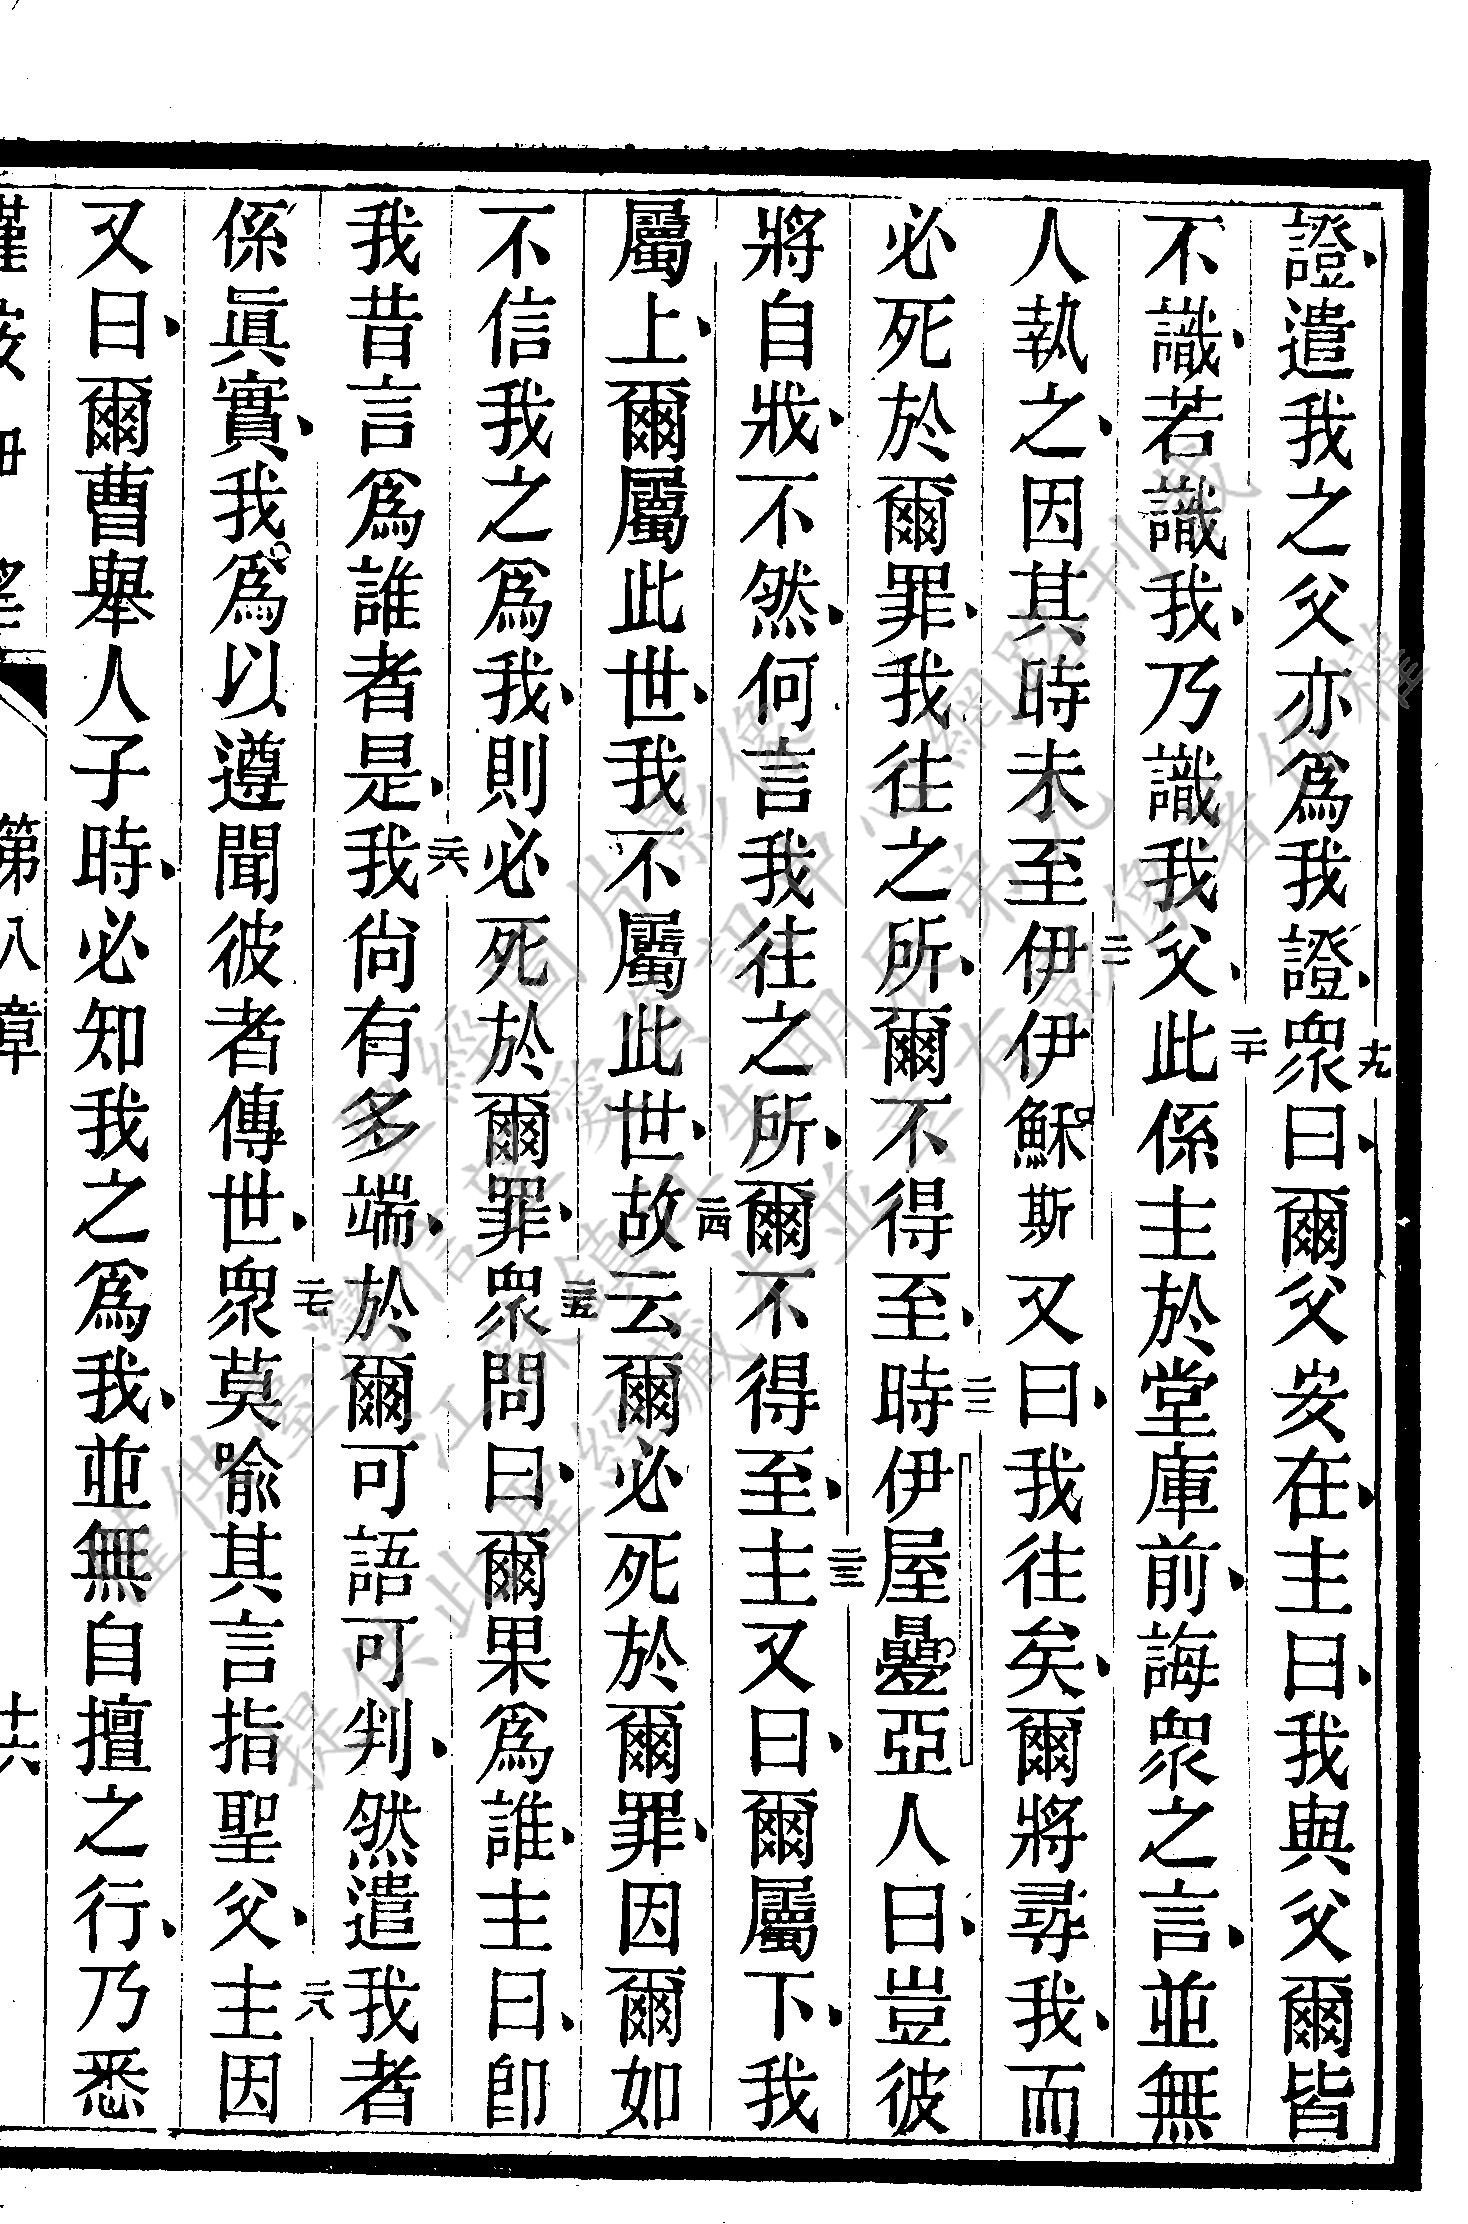 證、遣我之父亦爲我證、十九衆曰、爾父安在、主曰、我與父爾皆
不識、若識我、乃識我父、二十此係主於堂庫前、誨衆之言、並無
人執之、因其時未至二一伊伊穌斯又曰、我往矣、爾將尋我、而
必死於爾罪、我往之所、爾不得至、時二二伊屋疊亞人曰、豈彼
將自戕、不然、何言我往之所、爾不得至、二三主又曰、爾屬下、我
屬上、爾屬此世、我不屬此世、二四故云爾必死於爾罪、因爾如
不信我之爲我、則必死於爾罪、二五衆問曰、爾果爲誰、主曰、卽
我昔言爲誰者是、二六我尙有多端、於爾可語可判、然遣我者
係眞實、我爲以遵聞彼者傳世、二七衆莫喻其言指聖父、二八主因
又曰、爾曹舉人子時、必知我之爲我、並無自擅之行、乃悉
第八章
十六
提供此聖經藏本並共有原像著作權